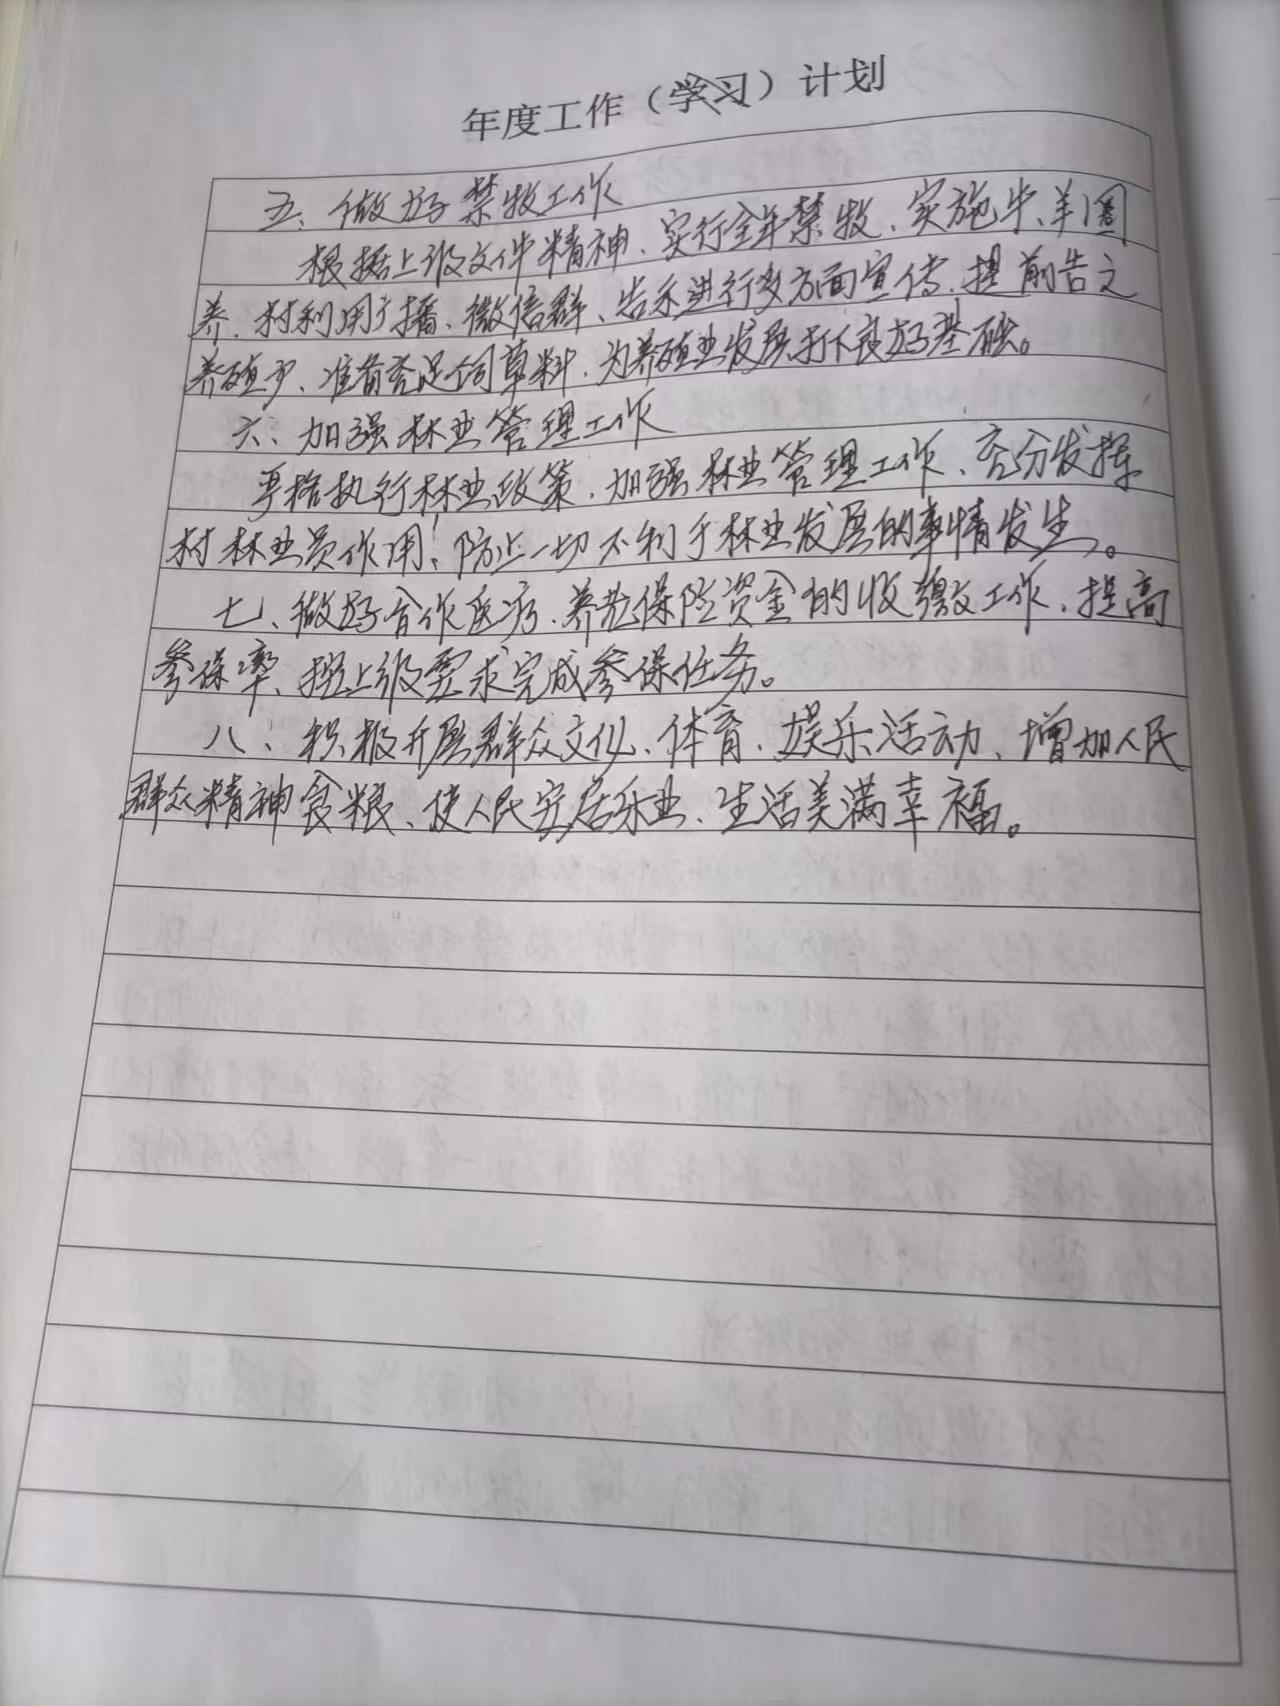 年度工作（学习）计划
五、做好禁牧工作
根据上级文件精神、实行全年禁牧、实施牛、羊圈
养、村利用广播、微信群、告示进行多方面宣传、提前告之
养殖户、准备充足饲草料、为养殖业发展打下良好基础。
六、加强林业管理工作
严格执行林业政策、加强林业管理工作、充分发挥
村林业员作用、防止一切不利于林业发展的事情发生。
七、做好合作医疗、养老保险资金的收缴工作、提高
参保率、按上级要求完成参保任务。
八、积极开展群众文化、体育、娱乐活动、增加人民
群众精神食粮、使人民安居乐业、生活美满幸福。